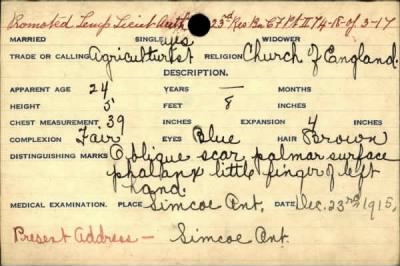 Promoted Temp Lieut Auth 23rd Res Bn C7 Pt II 74-18 of 3-17
MARRIED SINGLE yes WIDOWER
TRADE OR CALLING Agriculturist RELIGION Church of England.
DESCRIPTION.
APPARENT AGE 24 YEARS — MONTHS
HEIGHT 5 FEET 8 INCHES
CHEST MEASUREMENT 39 INCHES EXPANSION 4 INCHES
COMPLEXION Fair EYES Blue HAIR Brown
DISTINGUISHING MARKS Oblique scar palmar surface
phalanx little finger of left
hand.
MEDICAL EXAMINATION. PLACE Simcoe Ont. DATE Dec. 23rd 1915.
Present Address — Simcoe Ont.